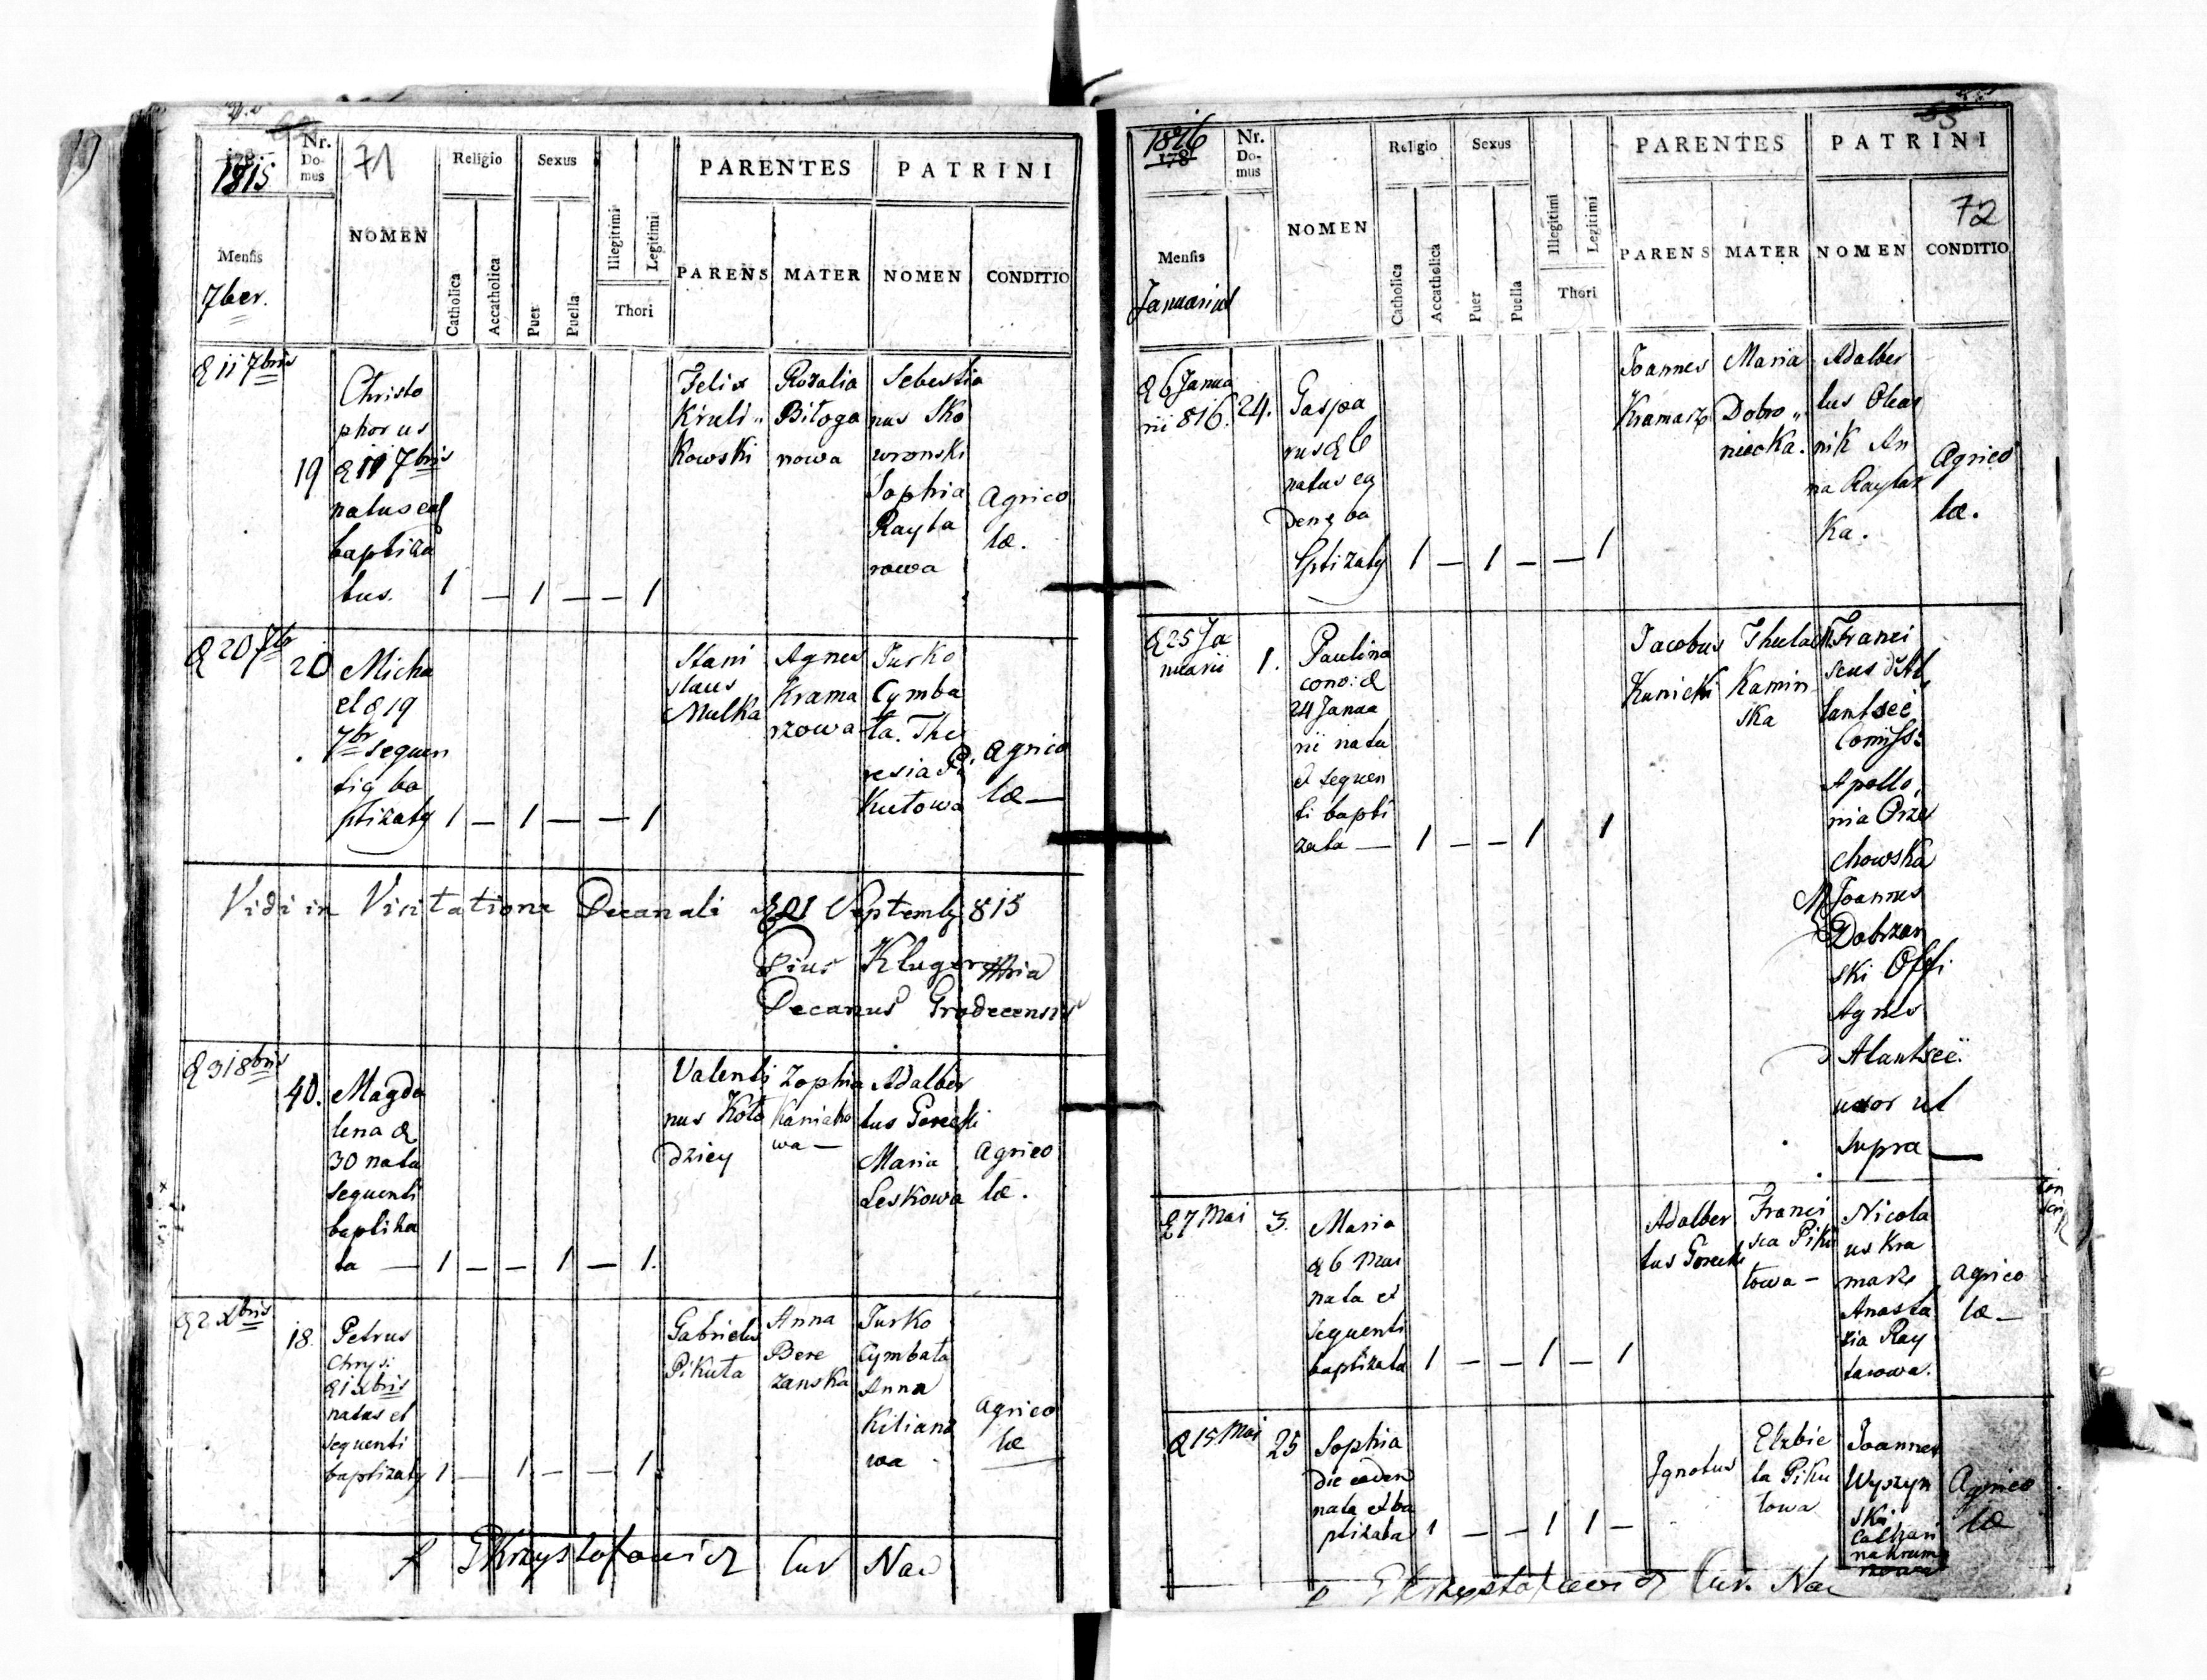 71
1815
Nr.
Do-
mus
NOMEN
Religio
Sexus
PARENTES
PATRINI
Mensis
7ber.
Catholica
Accatholica
Puer
Puella
Illegitimi
Legitimi
Thori
PARENS
MATER
NOMEN
CONDITIO
11 7bris
19
Christo
phorus
11 7bris
natus
baptiza
tus.
1 — 1 — — 1
Felix
Kruli
Kowski
Rozalia
Bitoga
nowa
Sebestia
nus Sko
wronski
Sophia
Rayta
rowa
Agrico
læ.
20 7br
20
Micha
el 19
7br sequen
ti ba
ptizatq
1 — 1 — — 1
Stani
slaus
Mulka
Agnes
Krama
rzowa
Jurko
Cymba
ła. The
resia Pi
Kutowa
Agrico
læ —
Vidi in Visitatione Decanali 21 Septemb 815
Pius Kluger
Decanus Grodecensis
31 8bris
40.
Magda
lena
30 nata
sequenti
baptiza
ta —
1 — — 1 — 1.
Valenti
nus Koło
dziey
Zophia
Kaniaho
wa —
Adalber
tus Gorecki
Maria
Leskowa
Agrico
læ.
2 Xbris
18.
Petrus
Chrys:
1 Xbris
natus et
sequenti
baptizatq
1 — 1 — — 1
Gabrielus
Pikuta
Anna
Bere
zanska
Jurko
Cymbała
Anna
Kiliano
wa
Agrico
læ
Krzystofowicz Cur Naw
1816
178
Nr.
Do-
mus
NOMEN
Religio
Sexus
PARENTES
PATRINI
72
Mensis
Januarius
Catholica
Accatholica
Puer
Puella
Illegitimi
Legitimi
Thori
PARENS
MATER
NOMEN
CONDITIO
6 Janua
rii 816.
24.
Gaspa
rus 6
natus
dem ba
ptizatq
1 — 1 — — 1
Joannes
Kramarz
Maria
Dobro
niecka.
Adalber
tus Olear
nik An
na Raytar
ka.
Agrico
læ.
25 Ja
nuarii
1.
Paulina
24 Janua
rii nata
et sequen
ti bapti
zata —
1 — — 1 1
Jacobus
Kunicki
Kamin
ska
Franci
scus d'At
lantsee
Comiss:
Apollo
nia Orze
chowska
Joannes
Dobrzan
ski Offi
Agnes
Atantseë
uxor ut
supra —
7 Mai
3.
Maria
6 Mai
nata et
sequenti
baptizata
1 — — 1 — 1
Adalber
tus Gorecki
Franci
sca Piku
towa —
Nicola
us Kra
marz
Anasta
zia Ray
tarowa.
Agrico
læ —
15 Mai
25
Sophia
die eadem
nata et ba
ptizata
1 — — 1 1 —
Ignotus
Elzbie
ta Piku
towa
Joannes
Wyszyn
ski
Cathari
na Kram
rzowa
Agrico
læ
Krzystofowicz Cur. Naw